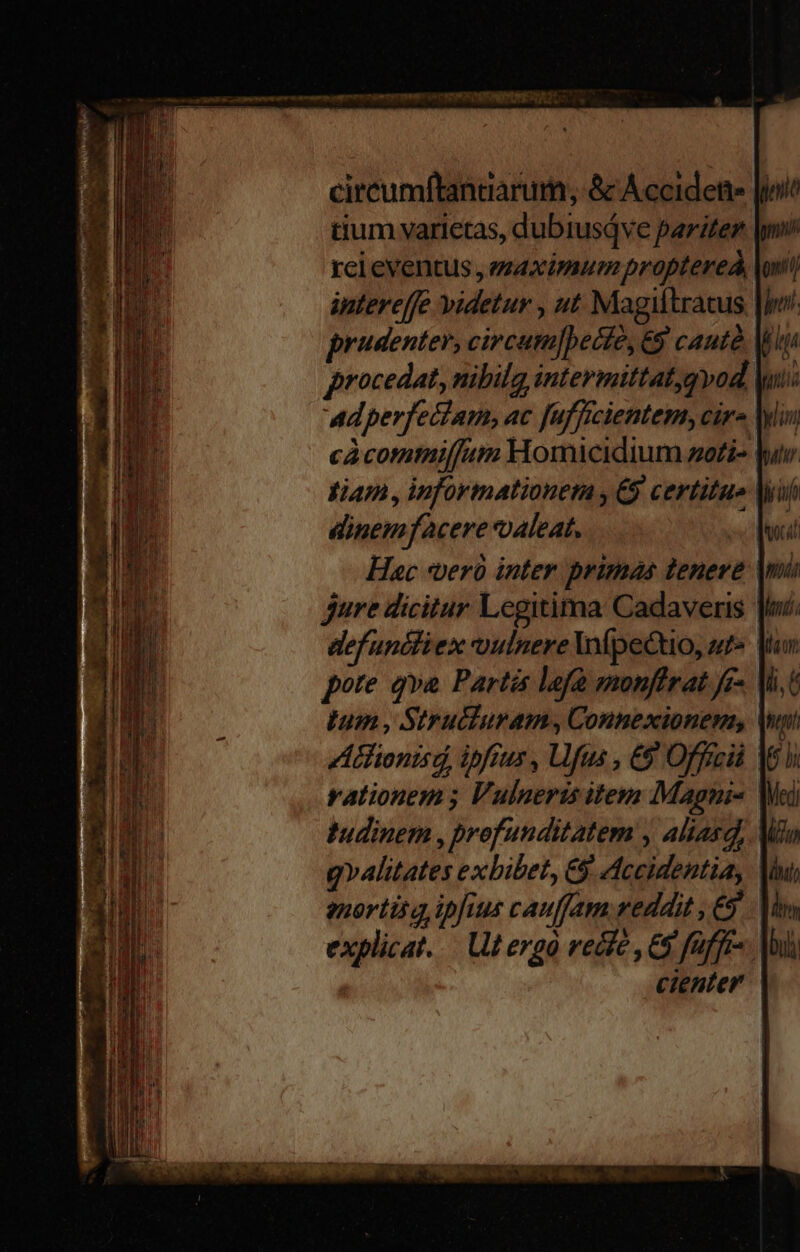 circumſtantiarum, & Acciden-
tium varietas, dubiusq́ve pariter
rei eventus, maximum propterea
intereſſe videtur, ut Magiſtratus
prudenter, circumſpectè, & cautè
procedat, nihilq; intermittat, qvod
ad perfectam, ac ſufficientem, cir-
cà commiſſum Homicidium noti-
tiam, informationem, & certitu-
dinem facere valeat.
Hac verò inter primas tenere
jure dicitur Legitima Cadaveris
defuncti ex vulnere Inſpectio, ut-
pote qva Partis læſæ monſtrat ſi-
tum, Structuram, Connexionem,
Actionisq́; ipſius, Uſus, & Officii
rationem; Vulneris item Magni-
tudinem, profunditatem, aliasq́;
qvalitates exhibet, & Accidentia,
mortisq; ipſius cauſſam reddit, &
explicat. Ut ergò rectè, & ſuffi-
cienter